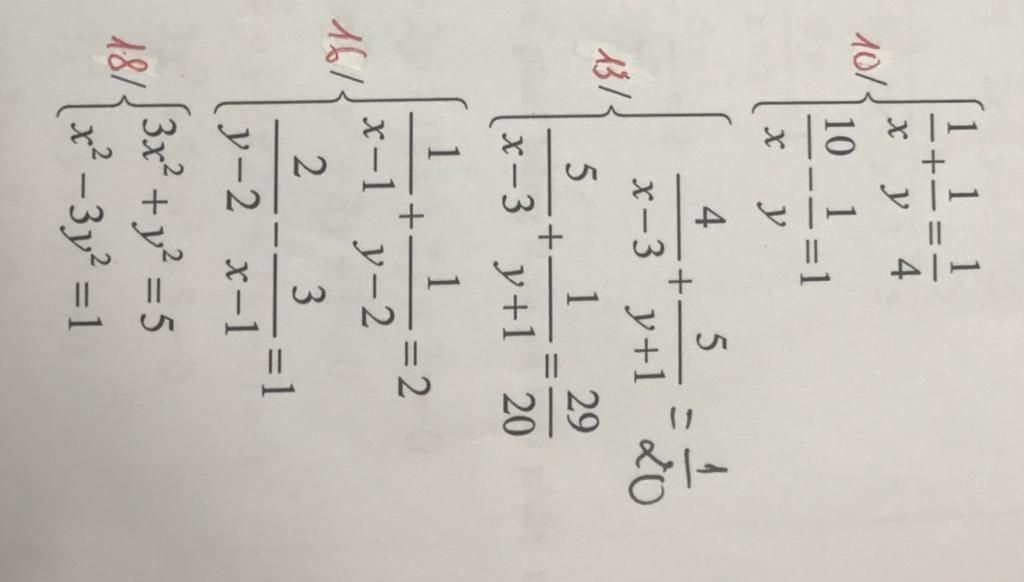 10/ { 1/x + 1/y = 1/4
10/x - 1/y = 1
13/ { 4/(x-3) + 5/(y+1) = 1/20
5/(x-3) + 1/(y+1) = 29/20
16/ { 1/(x-1) + 1/(y-2) = 2
2/(y-2) - 3/(x-1) = 1
18/ { 3x² + y² = 5
x² - 3y² = 1